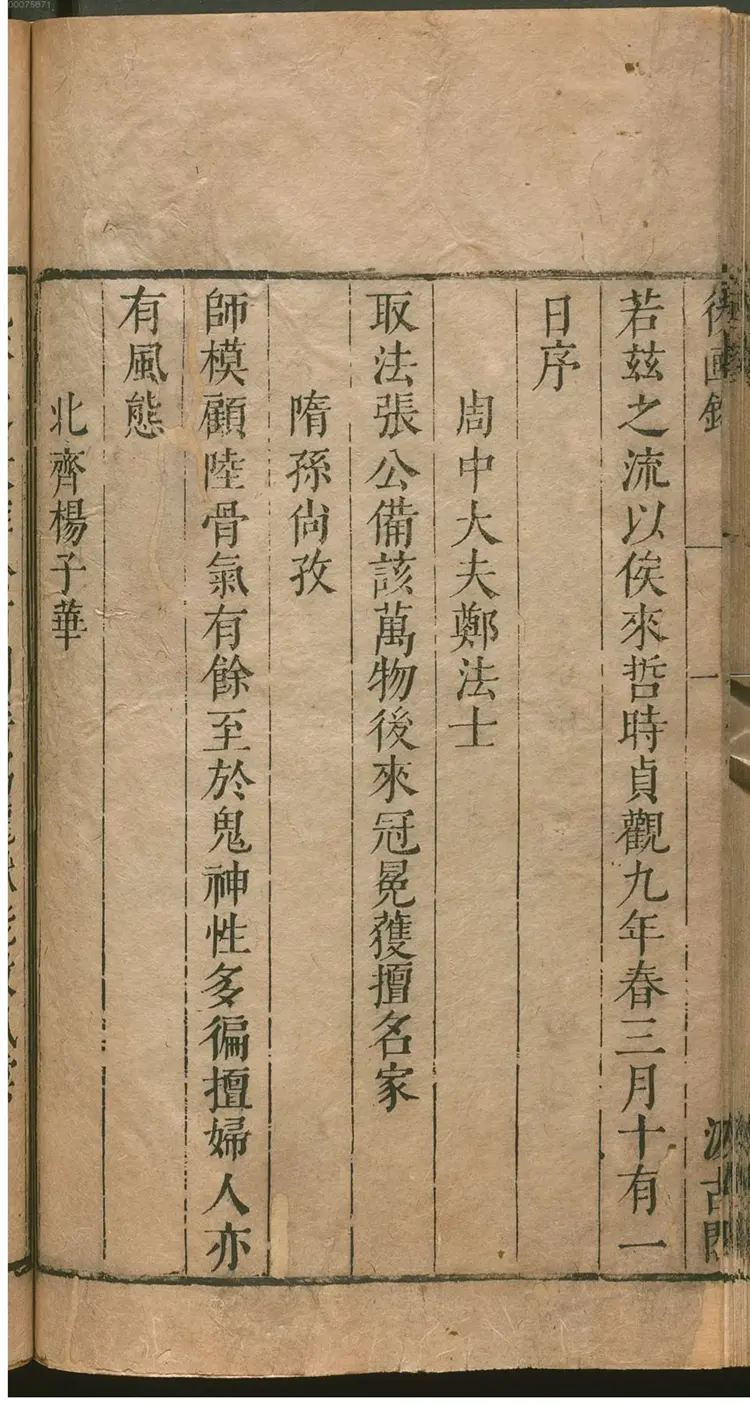 00075871
後畫錄
一
汲古閣
若兹之流以俟來哲時貞觀九年春三月十有一
日序
周中大夫鄭法士
取法張公備該萬物後來冠冕獲擅名家
隋孫尚孜
師模顧陸骨氣有餘至於鬼神性多徧擅婦人亦
有風態
北齊楊子華